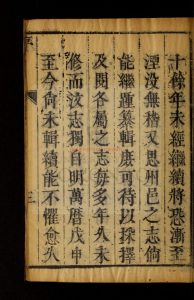 十餘年未經繼續將恐漸至
湮沒無稽又思州邑之志倘
能繼踵纂輯庶可待以採擇
及閱各屬之志每多年久未
修而汶志獨自明萬曆戊申
至今尚未輯續能不懼愈久